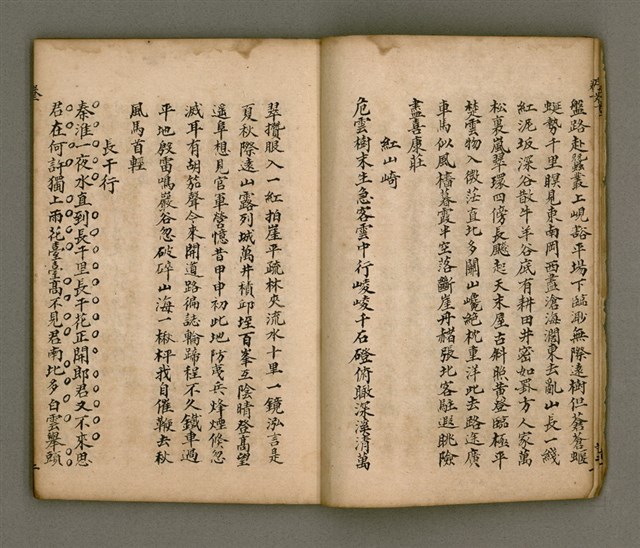 盤路赴蠶叢上峴豁平場下臨渺無際遠樹但蒼蒼蜿
蜒勢千里瞑見東南岡西盡滄海濶東去亂山長一綫
紅泥坂深谷散牛羊谷底有耕田井密如罫方人家萬
松裏嵐翠環四傍長颷起天末屋古斜照黃登臨極平
楚雲物入微茫直北多關山巉絕枕重洋此去路逵廣
車馬似風檣暮霞半空落斷崖丹赭張北客駐遐眺險
盡喜康莊
紅山崎
危雲樹末生急客雲中行崚崚千石磴俯瞰深潭清萬
翠攢眼入一紅拍崖平疏林夾流水十里一鏡泓言是
夏秋際遠山露列城萬井積邱埕百峯互陰晴登高望
遥阜想見官軍營憶昔甲申初此地防戍兵烽煙倏忽
滅耳有胡笳聲今來開道路徧誌輪蹄程不久鐵車過
平地殷雷鳴嚴谷忽破碎山海一楸枰我自催鞭去秋
風馬首輕
長干行
秦淮一夜水直到長千里長千花正開郎君又不來思
君在何許獨上雨花臺臺高不見君南北多白雲舉頭